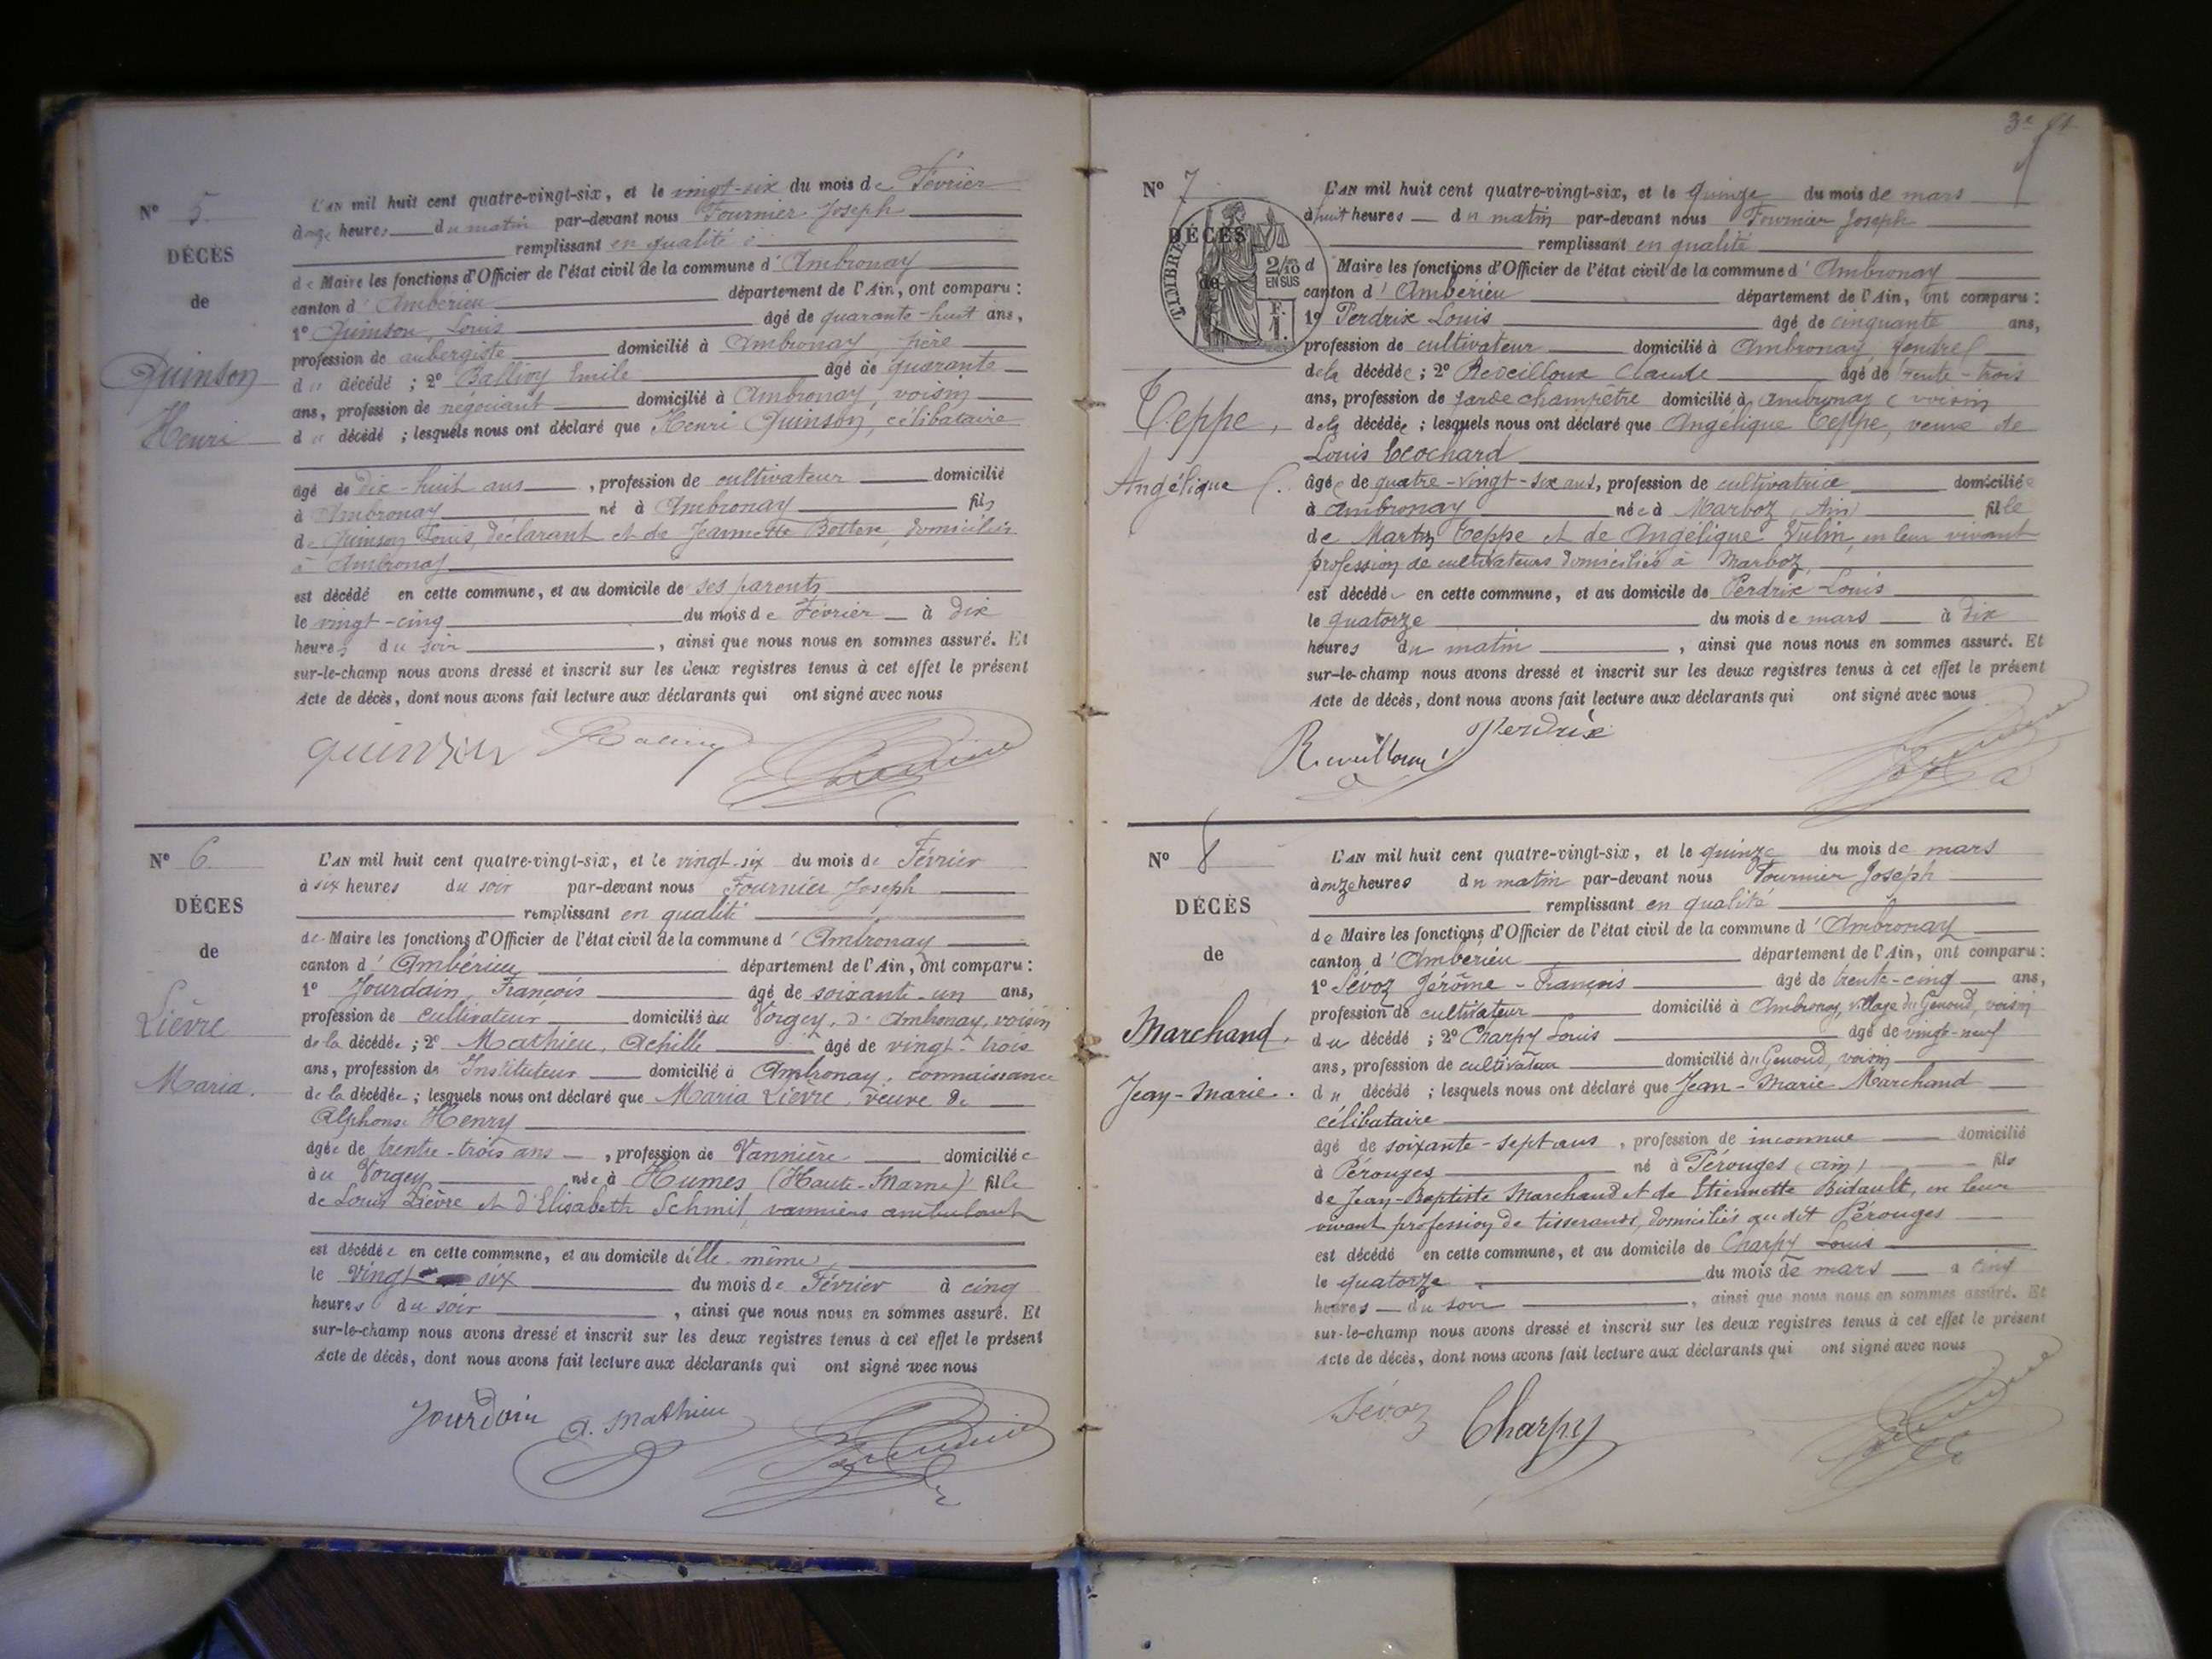 Nº 5.
DÉCÈS
de
Quinson
Henri
L'AN mil huit cent quatre-vingt-six, et le vingt-six du mois de Février
à onze heures du matin par-devant nous Fournier Joseph
remplissant en qualité
de Maire les fonctions d'Officier de l'état civil de la commune d'Ambronay
canton d'Ambérieu département de l'Ain, ont comparu :
1º Quinson, Louis âgé de quarante-huit ans,
profession de aubergiste domicilié à Ambronay, père
du décédé ; 2º Ballivy Emile âgé de quarante
ans, profession de négociant domicilié à Ambronay, voisin
du décédé ; lesquels nous ont déclaré que Henri Quinson, célibataire
âgé de dix-huit ans, profession de cultivateur domicilié
à Ambronay né à Ambronay fils
de Quinson Louis, déclarant et de Jeannette domiciliés
à Ambronay
est décédé en cette commune, et au domicile de ses parents
le vingt-cinq du mois de Février à dix
heures du soir, ainsi que nous nous en sommes assuré. Et
sur-le-champ nous avons dressé et inscrit sur les deux registres tenus à cet effet le présent
Acte de décès, dont nous avons fait lecture aux déclarants qui ont signé avec nous
quinson
Nº 6.
DÉCES
de
Lièvre
Maria.
L'AN mil huit cent quatre-vingt-six, et le vingt-six du mois de Février
à six heures du soir par-devant nous Fournier Joseph
remplissant en qualité
de Maire les fonctions d'Officier de l'état civil de la commune d'Ambronay
canton d'Ambérieu département de l'Ain, ont comparu :
1º Jourdain, François âgé de soixante-un ans,
profession de cultivateur domicilié au Vorgey, d'Ambronay, voisin
de la décédée ; 2º Mathieu, Achille âgé de vingt-trois
ans, profession de Instituteur domicilié à Ambronay, connaissance
de la décédée ; lesquels nous ont déclaré que Maria Lièvre, veuve de
Alphonse Henry
âgée de trente-trois ans, profession de Vannière domiciliée
au Vorgey née à Humes (Haute-Marne) fille
de Louis Lièvre et d'Elisabeth Schmit, vanniers ambulants
est décédée en cette commune, et au domicile d'elle-même,
le vingt-six du mois de Février à cinq
heures du soir, ainsi que nous nous en sommes assuré. Et
sur-le-champ nous avons dressé et inscrit sur les deux registres tenus à cet effet le présent
Acte de décès, dont nous avons fait lecture aux déclarants qui ont signé avec nous
Jourdain A. Mathieu
Nº 7
DÉCES
de
TIMBRE
2/10 EN SUS
F. 1.
Teppe,
Angélique
L'AN mil huit cent quatre-vingt-six, et le quinze du mois de mars
à huit heures du matin par-devant nous Fournier Joseph
remplissant en qualité
d Maire les fonctions d'Officier de l'état civil de la commune d'Ambronay
canton d'Ambérieu département de l'Ain, ont comparu :
1º Perdrix Louis âgé de cinquante ans,
profession de cultivateur domicilié à Ambronay, gendre
de la décédée ; 2º Reveilloux Claude âgé de trente-trois
ans, profession de garde champêtre domicilié à Ambronay, voisin
de la décédée ; lesquels nous ont déclaré que Angélique Teppe, veuve de
Louis
âgée de quatre-vingt-six ans, profession de cultivatrice domiciliée
à Ambronay née à Marboz (Ain) fille
de Martin Teppe et de Angélique Vulin, en leur vivant
profession de cultivateurs domiciliés à Marboz,
est décédée en cette commune, et au domicile de Perdrix Louis
le quatorze du mois de mars à dix
heures du matin, ainsi que nous nous en sommes assuré. Et
sur-le-champ nous avons dressé et inscrit sur les deux registres tenus à cet effet le présent
Acte de décès, dont nous avons fait lecture aux déclarants qui ont signé avec nous
Perdrix
Nº 8
DÉCÈS
de
Marchand.
Jean-Marie.
L'AN mil huit cent quatre-vingt-six, et le quinze du mois de mars
à onze heures du matin par-devant nous Fournier Joseph
remplissant en qualité
de Maire les fonctions d'Officier de l'état civil de la commune d'Ambronay
canton d'Ambérieu département de l'Ain, ont comparu :
1º Sévoz Jérôme-François âgé de trente-cinq ans,
profession de cultivateur domicilié à Ambronay, village du Genoud, voisin
du décédé ; 2º Charpy Louis âgé de vingt-neuf
ans, profession de cultivateur domicilié au Genoud, voisin
du décédé ; lesquels nous ont déclaré que Jean-Marie Marchand
célibataire
âgé de soixante-sept ans, profession de inconnue domicilié
à Pérouges né à Pérouges (ain) fils
de Jean-Baptiste Marchand et de Etiennette Bidault, en leur
vivant profession de tisserands, domiciliés au dit Pérouges
est décédé en cette commune, et au domicile de Charpy Louis
le quatorze du mois de mars à cinq
heures du soir, ainsi que nous nous en sommes assuré. Et
sur-le-champ nous avons dressé et inscrit sur les deux registres tenus à cet effet le présent
Acte de décès, dont nous avons fait lecture aux déclarants qui ont signé avec nous
Sévoz Charpy